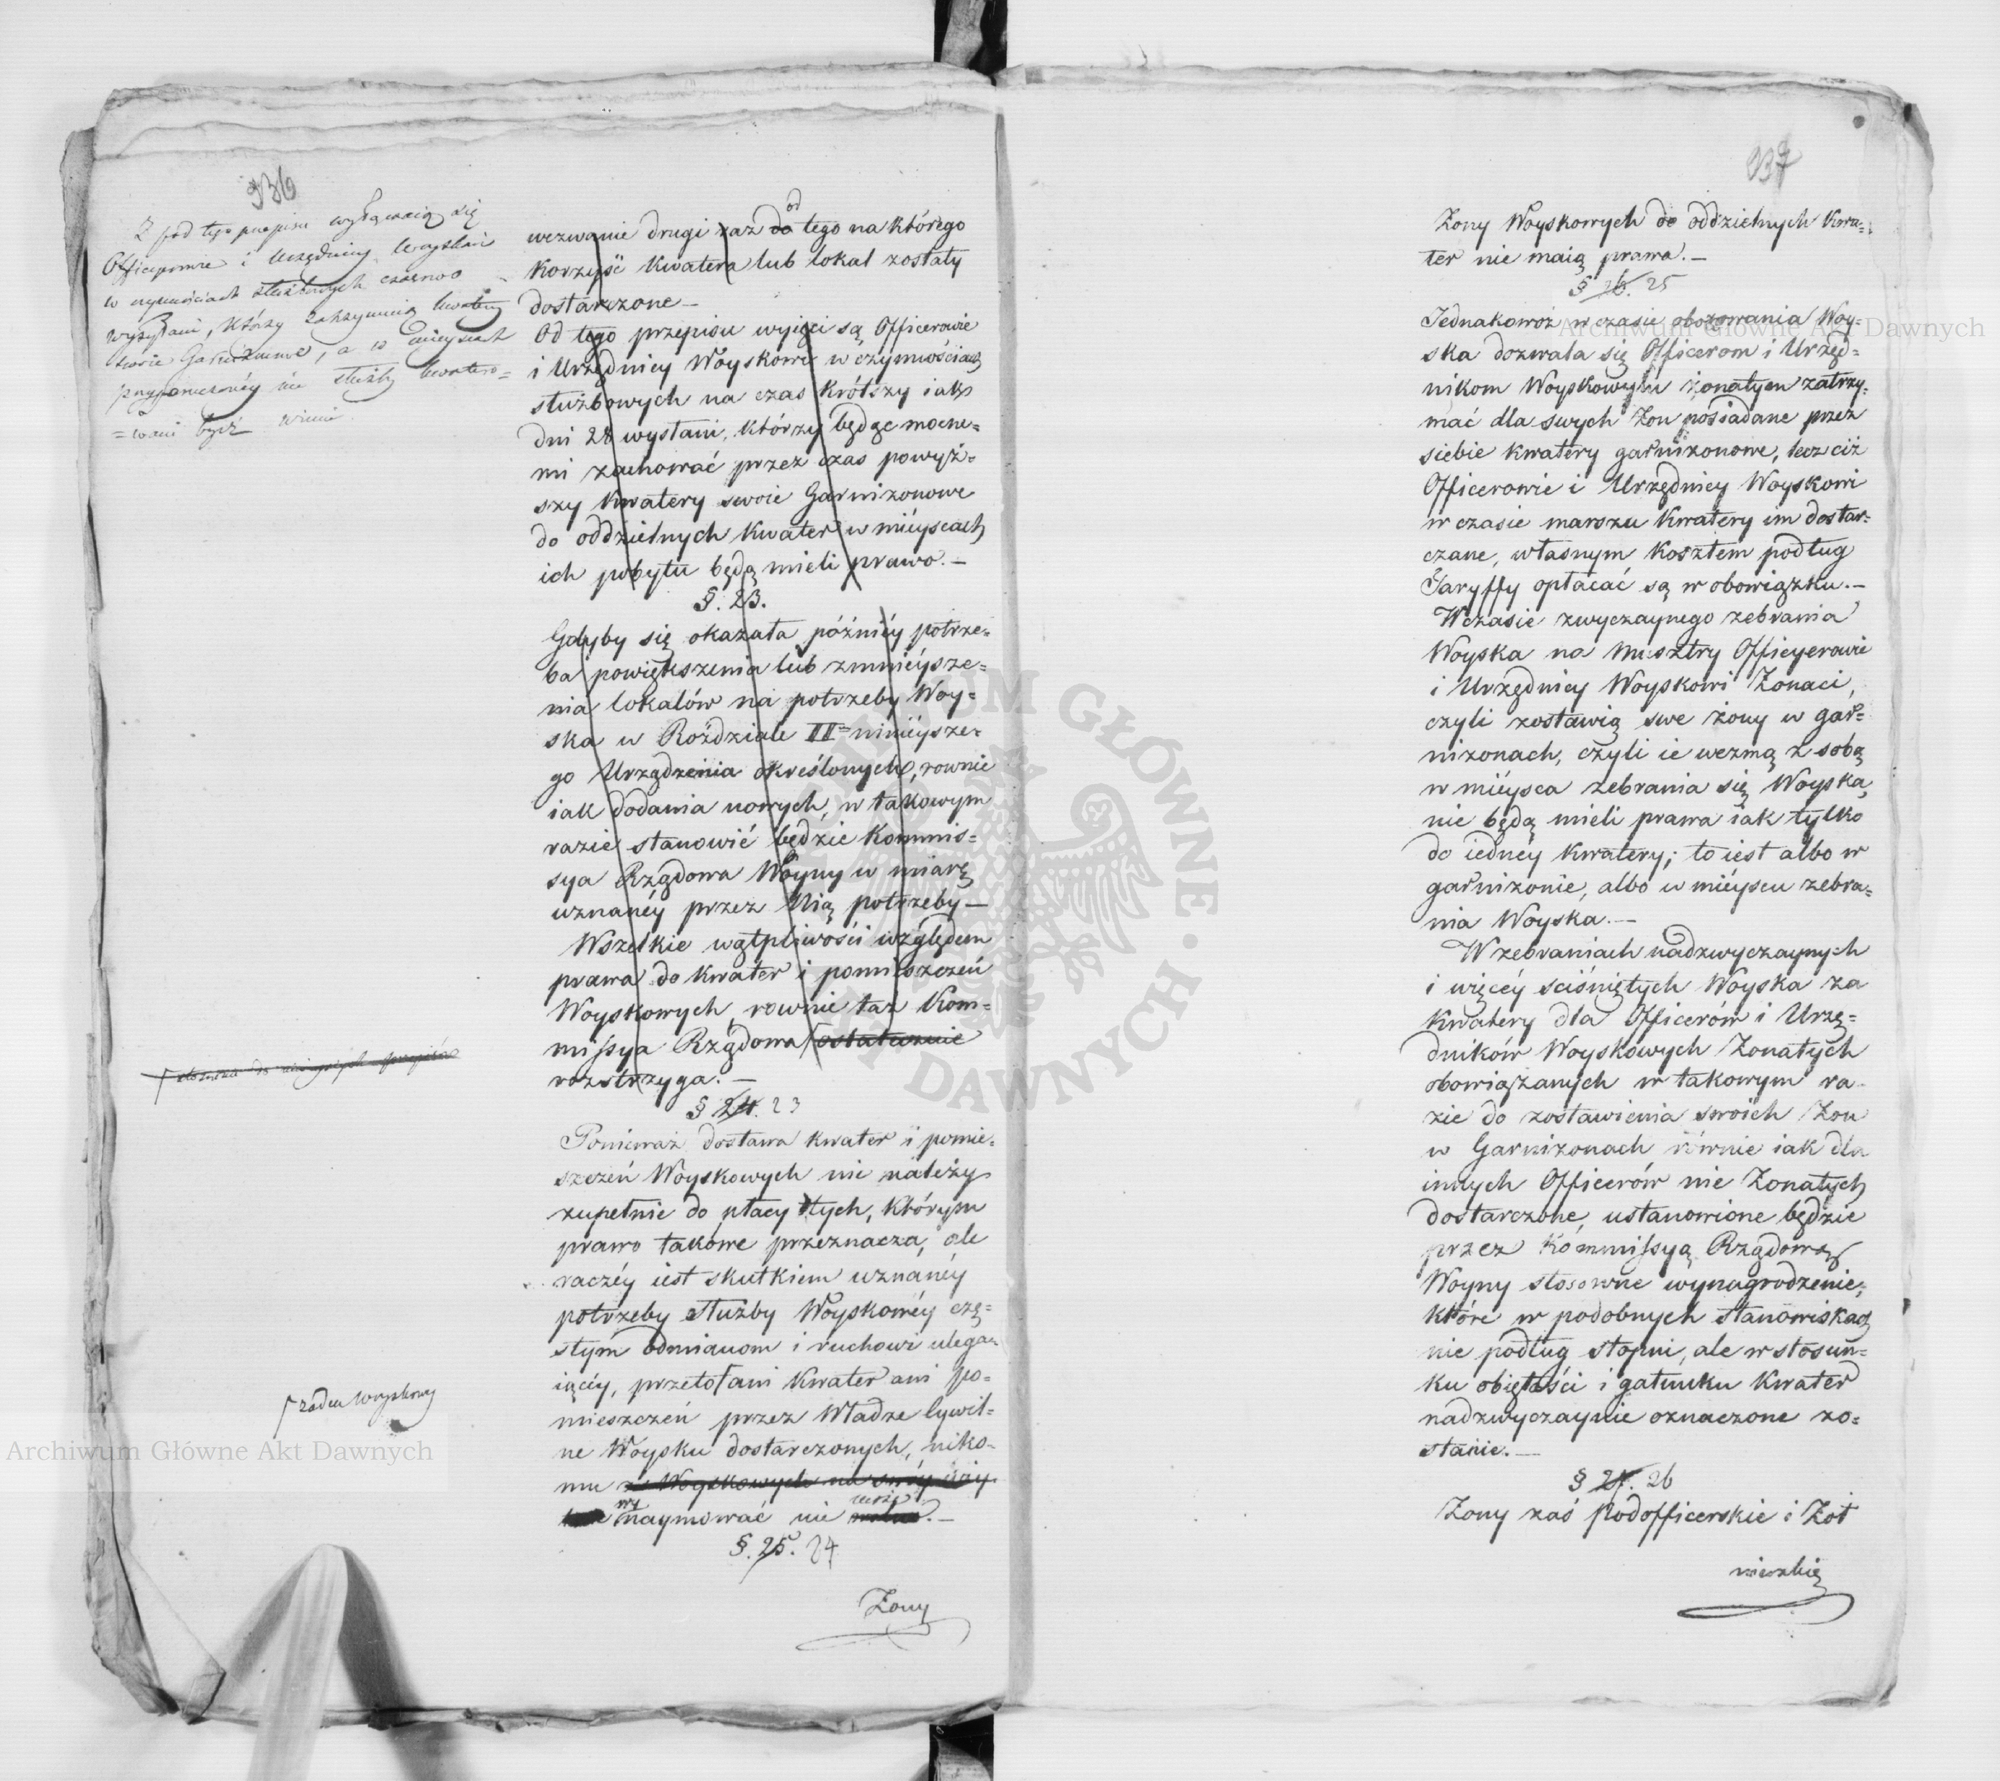 936
Z pod tego przepisu wyłączaią się
Officerowie i Urzędnicy Woyskowi
w czynnościach służbowych czasowo
wysyłani, którzy zatrzymuią kwatery
swoie Garnizonowe, a w mieyscach
przeznaczonéy im służby kwatero=
=wani być winni
wezwanie drugi raz do od tego na którego
korzyść kwatera lub lokal zostały
dostarczone —
Od tego przepisu wyięci są Officerowie
i Urzędnicy Woyskowi w czynnościach
służbowych na czas krótszy iak
dni 28 wysłani, którzy będąc mocne=
mi zachować przez czas powyż=
szy kwatery swoie Garnizonowe
do oddzielnych kwater w mieyscach
ich pobytu będą mieli prawo. —
§. 23.
Gdyby się okazała późniéy potrze=
ba powiększenia lub zmnieysze=
nia lokalów na potrzeby Woy=
ska w Rozdziale II nineysze=
go Urządzenia określonych, rownie
iak dodania nowych, w takowym
razie stanowić będzie Kommis=
sya Rządowa Woyny w miarę
uznanéy przez Nią potrzeby —
Wszelkie wątpliwości względem
prawa do kwater i pomieszczeń
Woyskowych, rownie taż Kom=
missya Rządowa ostatecznie
rozstrzyga. —
§ 24. 23
Ponieważ dostawa kwater i pomie=
szczeń Woyskowych nie należy
zupełnie do płacy tych, którym
prawo takowe przeznacza, ale
raczéy iest skutkiem uznanéy
potrzeby służby Woyskowéy czę=
stym odmianom i ruchowi ulega=
iącéy, przeto ani kwater ani po=
mieszczeń przez Władze Cywil=
ne Woysku dostarczonych, niko=
żaden Woyskowy
mu z Woyskowych na swóy
wynaymować nie
§. 25. 24
Żony
937
Żony Woyskowych do oddzielnych kwa=
ter nie maią prawa. —
§ 26. 25
Jednakowoż w czasie obozowania Woy=
ska dozwala się Officerom i Urzęd=
nikom Woyskowym żonatym zatrzy=
mać dla swych Żon posiadane przez
siebie kwatery garnizonowe, lecz ciż
Officerowie i Urzędnicy Woyskowi
w czasie marszu kwatery im dostar=
czane, własnym kosztem podług
Taryffy opłacać są w obowiązku. —
W czasie zwyczaynego zebrania
Woyska na Musztry Officyerowie
i Urzędnicy Woyskowi Żonaci,
czyli zostawią swe żony w gar=
nizonach, czyli ie wezmą z sobą
w mieysca zebrania się Woyska,
nie będą mieli prawa iak tylko
do iednéy kwatery; to iest albo w
garnizonie, albo w mieyscu zebra=
nia Woyska. —
W zebraniach nadzwyczaynych
i więcéy ściśniętych Woyska za
kwatery dla Officerów i Urzę=
dników Woyskowych Żonatych
obowiązanych w takowym ra=
zie do zostawienia swoich Żon
w Garnizonach równie iak dla
innych Officerów nie Żonatych
dostarczone, ustanowione będzie
przez Kommissyą Rządową
Woyny stosowne wynagrodzenie,
które w podobnych stanowiskach
nie podług stopni, ale w stosun=
ku obiętości i gatunku kwater
nadzwyczaynie oznaczone zo=
stanie. —
§ 27. 26
Żony zaś Podofficerskie i Żoł
nierskie
Archiwum Główne Akt Dawnych
Archiwum Główne Akt Dawnych
ARCHIWUM GŁÓWNE · AKT DAWNYCH ·